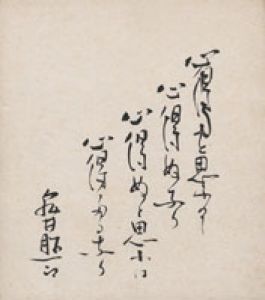 心得たと思ふは
心得ぬなり
心得ぬと思ふは
心得たるなり